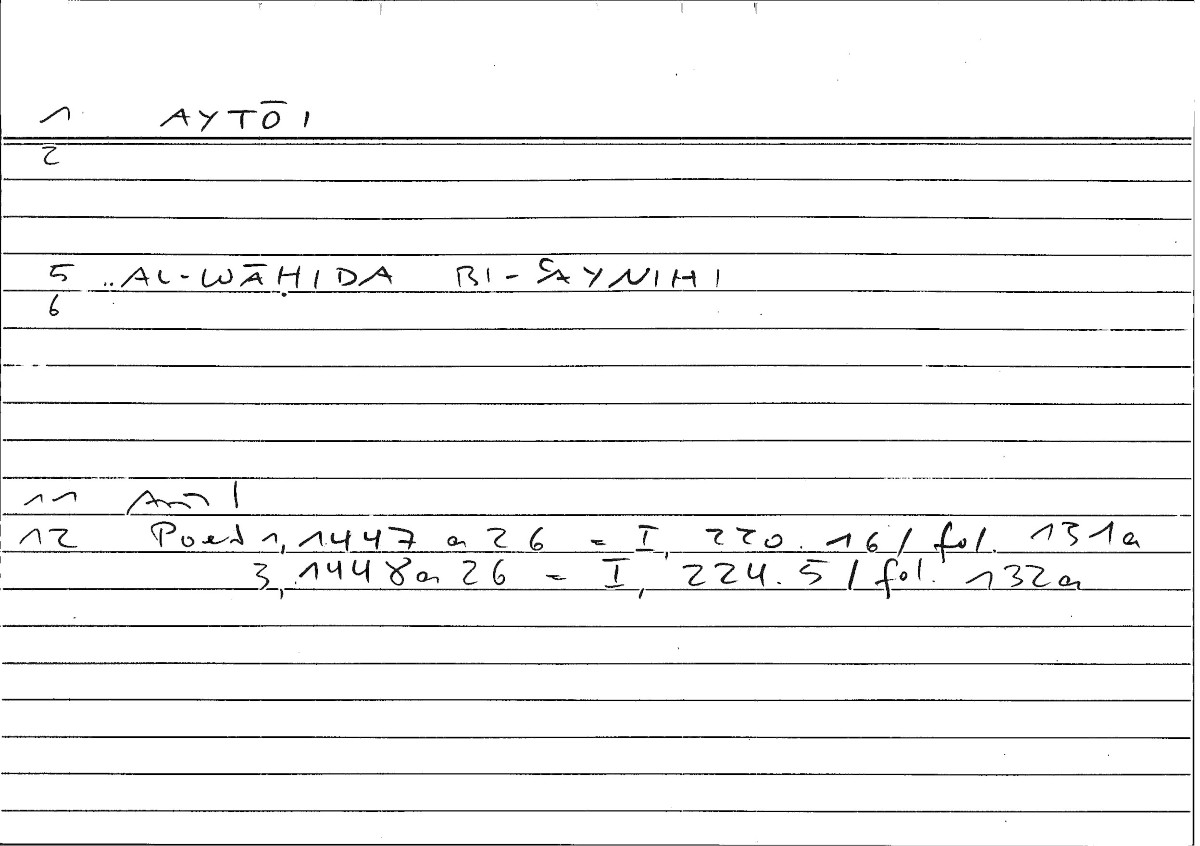 1 AYTŌI
2
5 ..AL-WĀḤIDA BI-ʿAYNIHI
6
11
12 Poet 1,1447 a 26 = I, 220.16 / fol. 131a
3,1448a 26 = I, 224.5 / fol. 132a